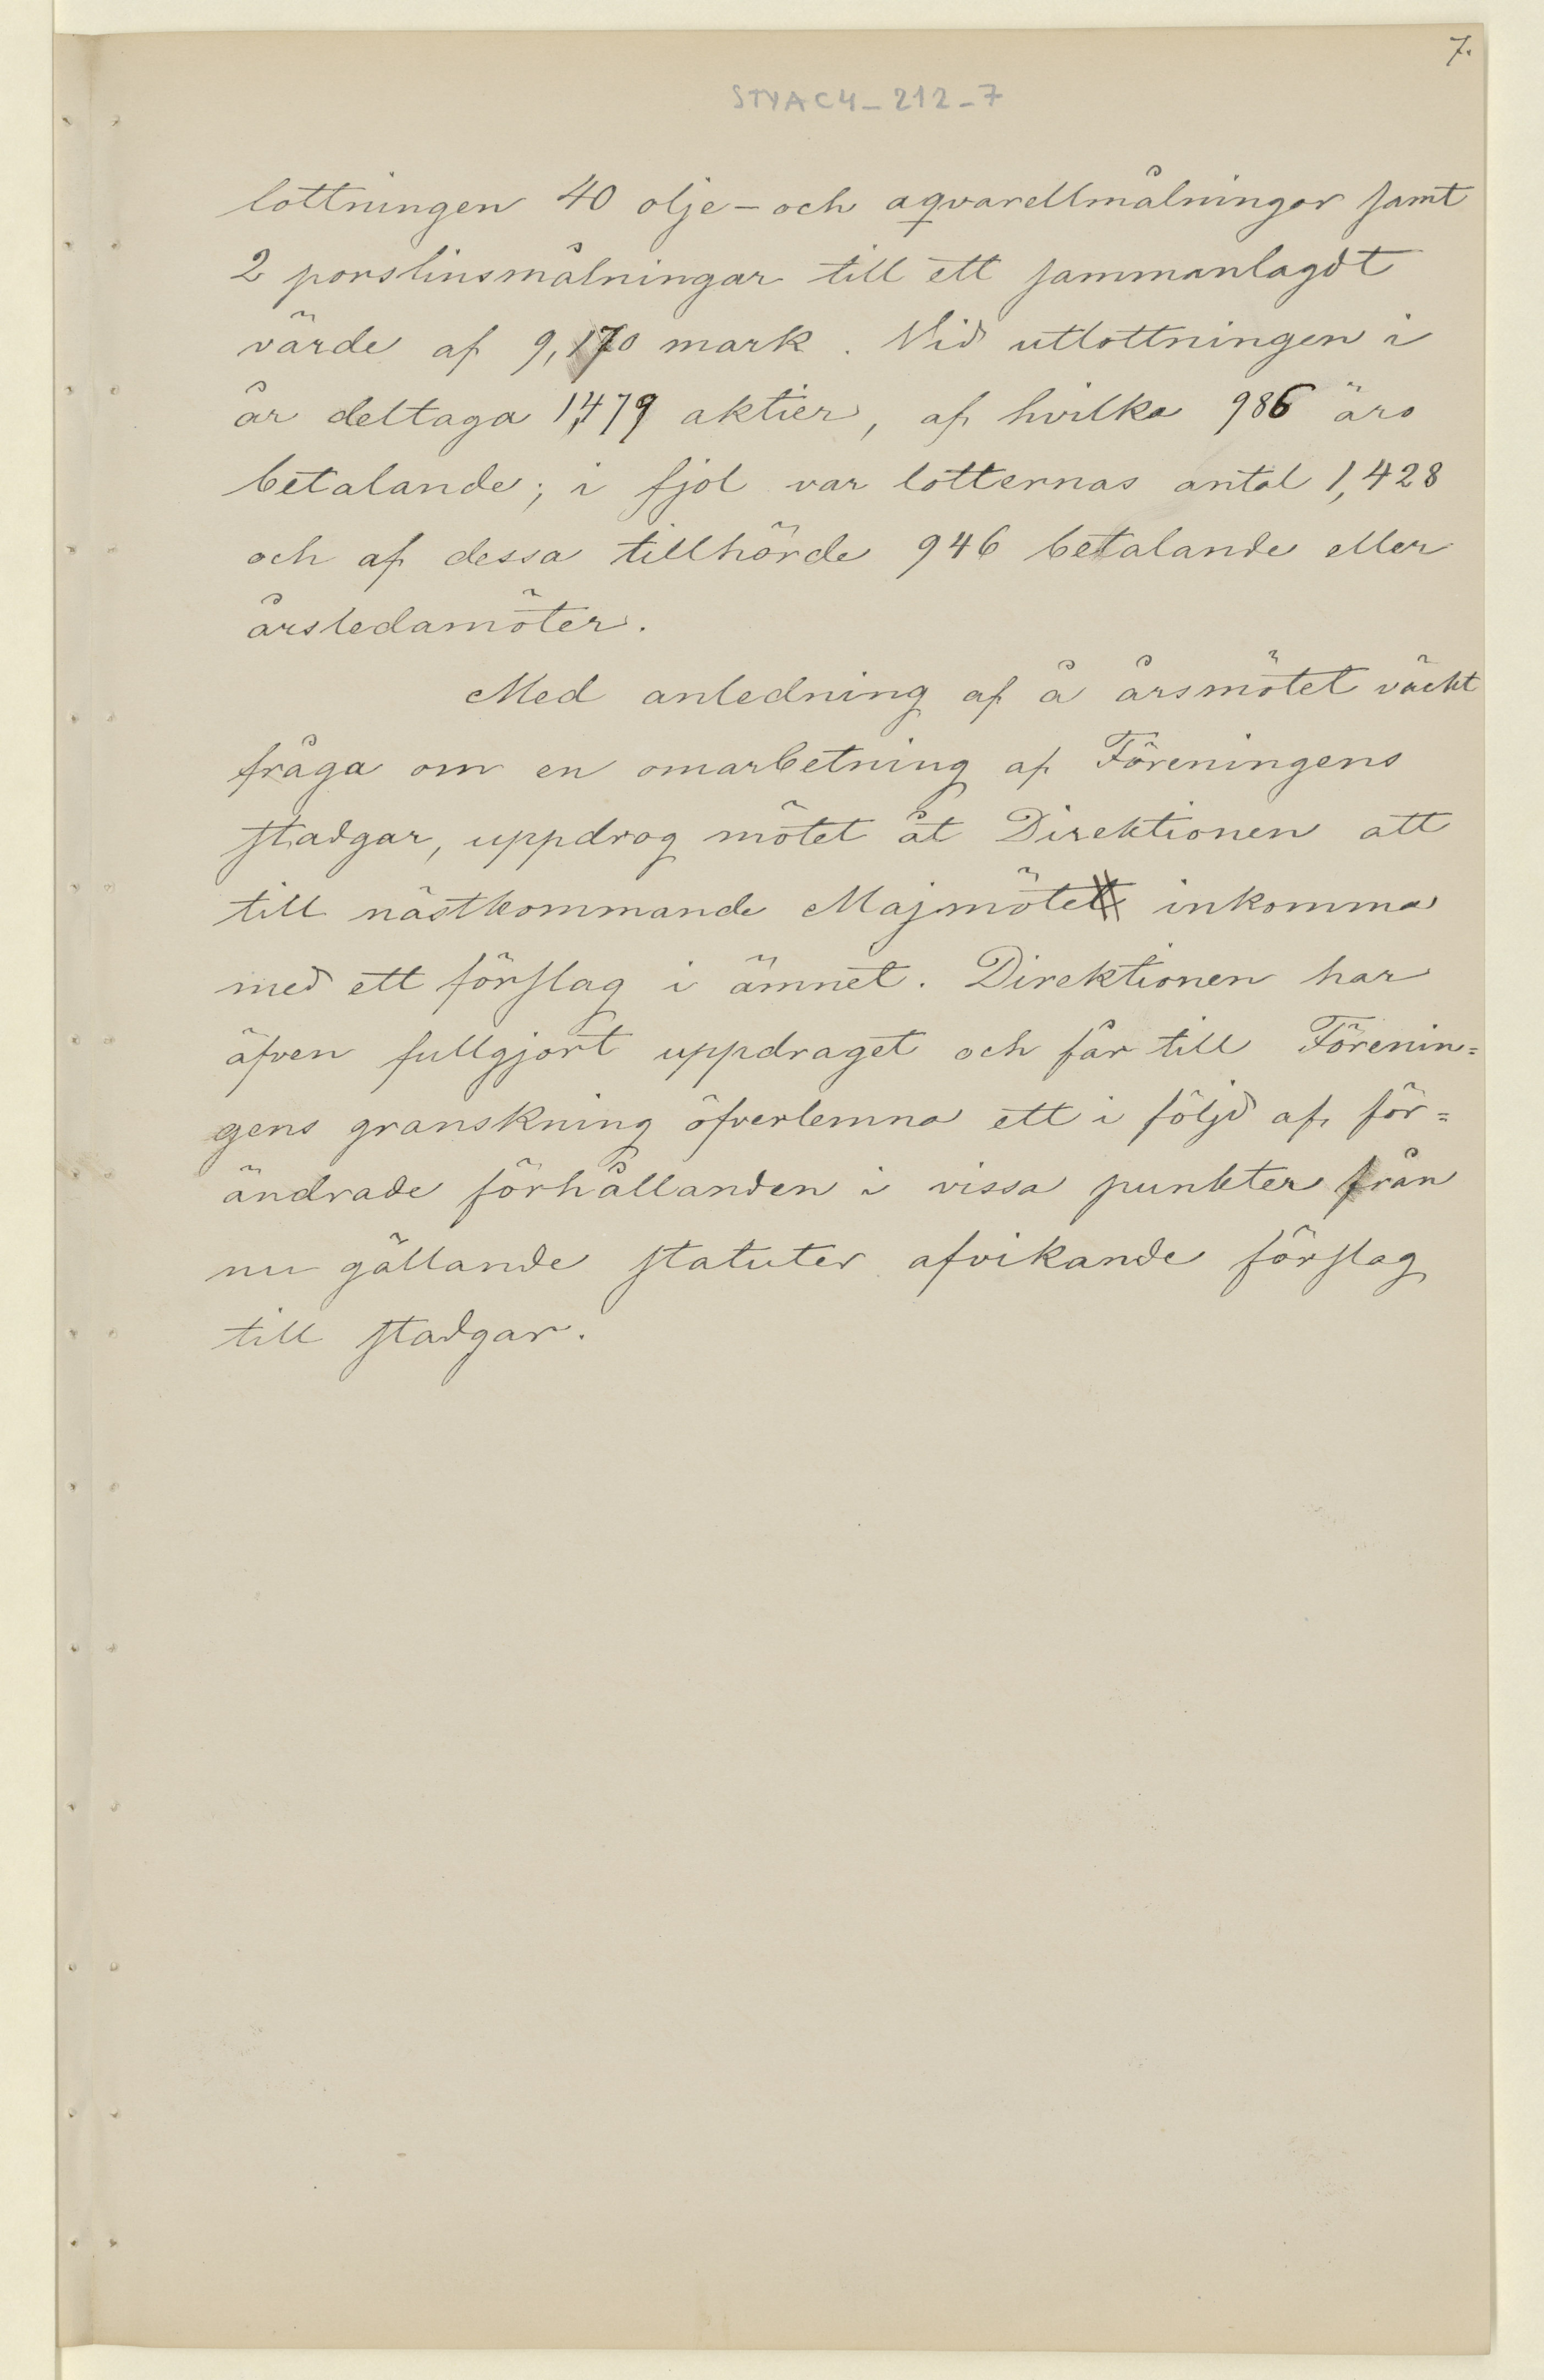 7.
STYAC4_212_7
lottningen 40 olje- och aqvarellmålningar samt
2 porslinsmålningar till ett sammanlagdt
värde af 9,170 mark. Vid utlottningen i
år deltaga 1,479 aktier, af hvilka 986 äro
betalande; i fjol var lotternas antal 1,428
och af dessa tillhörde 946 betalande eller
årsledamöter.
Med anledning af å årsmötet väckt
fråga om en omarbetning af Föreningens
stadgar, uppdrog mötet åt Direktionen att
till nästkommande Majmöte inkomma
med ett förslag i ämnet. Direktionen har
äfven fullgjort uppdraget och får till Förenin=
gens granskning öfverlemna ett i följd af för=
ändrade förhållanden i vissa punkter från
nu gällande statuter afvikande förslag
till stadgar.